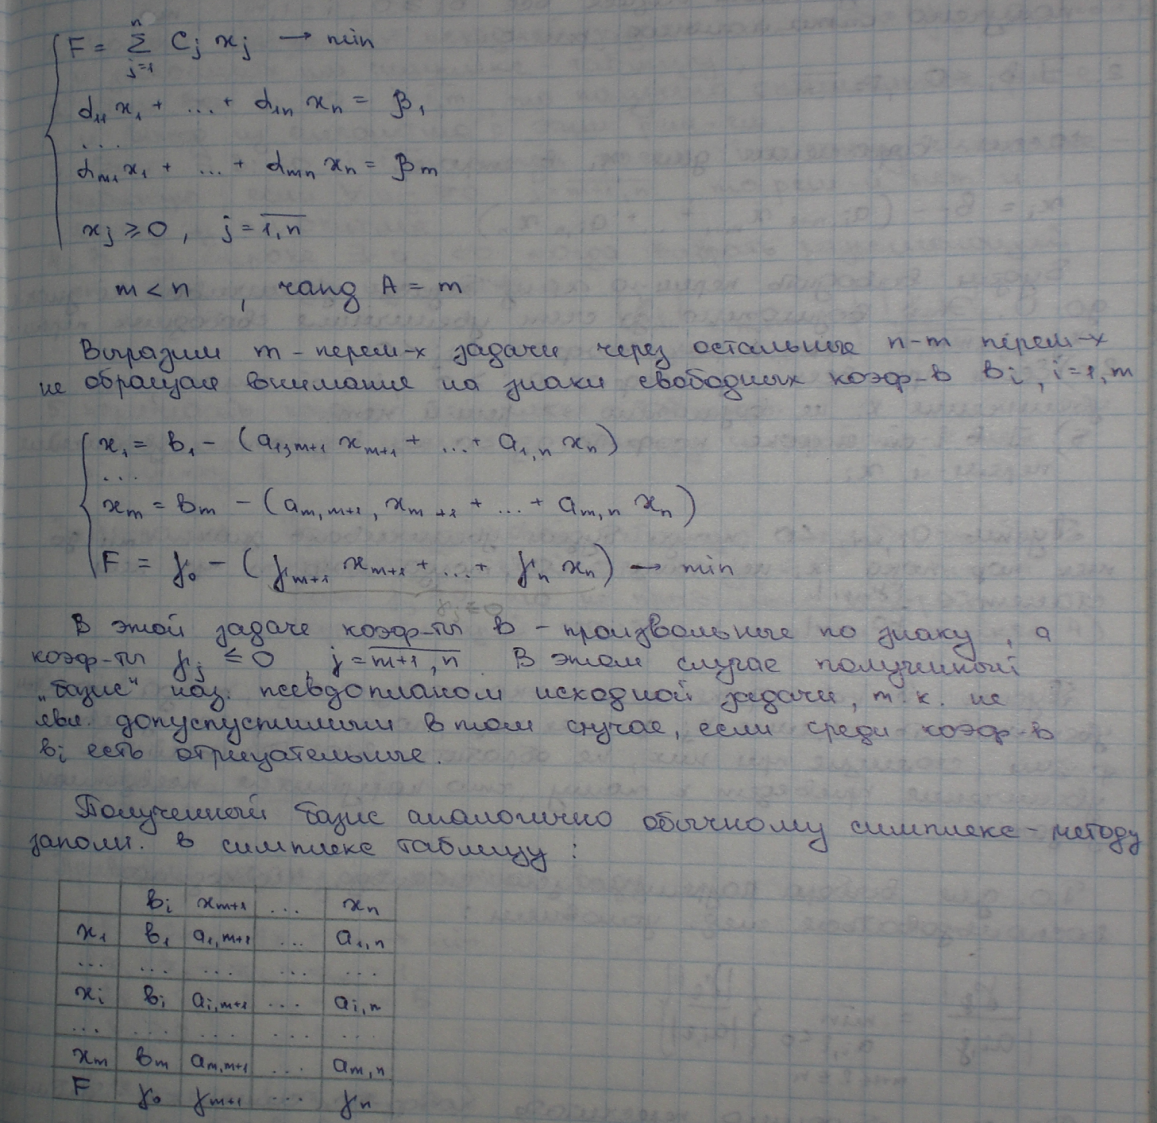 F = Σ_{j=1}^{n} Cj xj → min
α11 x1 + ... + α1n xn = β1
...
αm1 x1 + ... + αmn xn = βm
xj ≥ 0, j = 1,n
m < n , ранд A = m
Выразим m - перем-х задачи через остальные n-m перем-х
не обращая внимание на знаки свободных коэф-в bi, i=1,m
x1 = b1 - (a1,m+1 xm+1 + ... + a1,n xn)
...
xm = bm - (am,m+1, xm+1 + ... + am,n xn)
F = γ0 - (γm+1 xm+1 + ... + γn xn) → min
γj ≤ 0
В этой задаче коэф-ты b - произвольные по знаку, а
коэф-ты γj ≤ 0, j = m+1,n. В этом случае полученный
"базис" наз. псевдопланом исходной задачи, т.к. не
явл. допуспустимым в том случае, если среди коэф-в
bi есть отрицательные.
Полученный базис аналогично обычному симплекс-методу
заполн. в симплекс таблицу :
bi xm+1 ... xn
x1 b1 a1,m+1 ... a1,n
... ... ... ... ...
xi bi ai,m+1 ... ai,n
... ... ... ... ...
xm bm am,m+1 ... am,n
F γ0 γm+1 ... γn